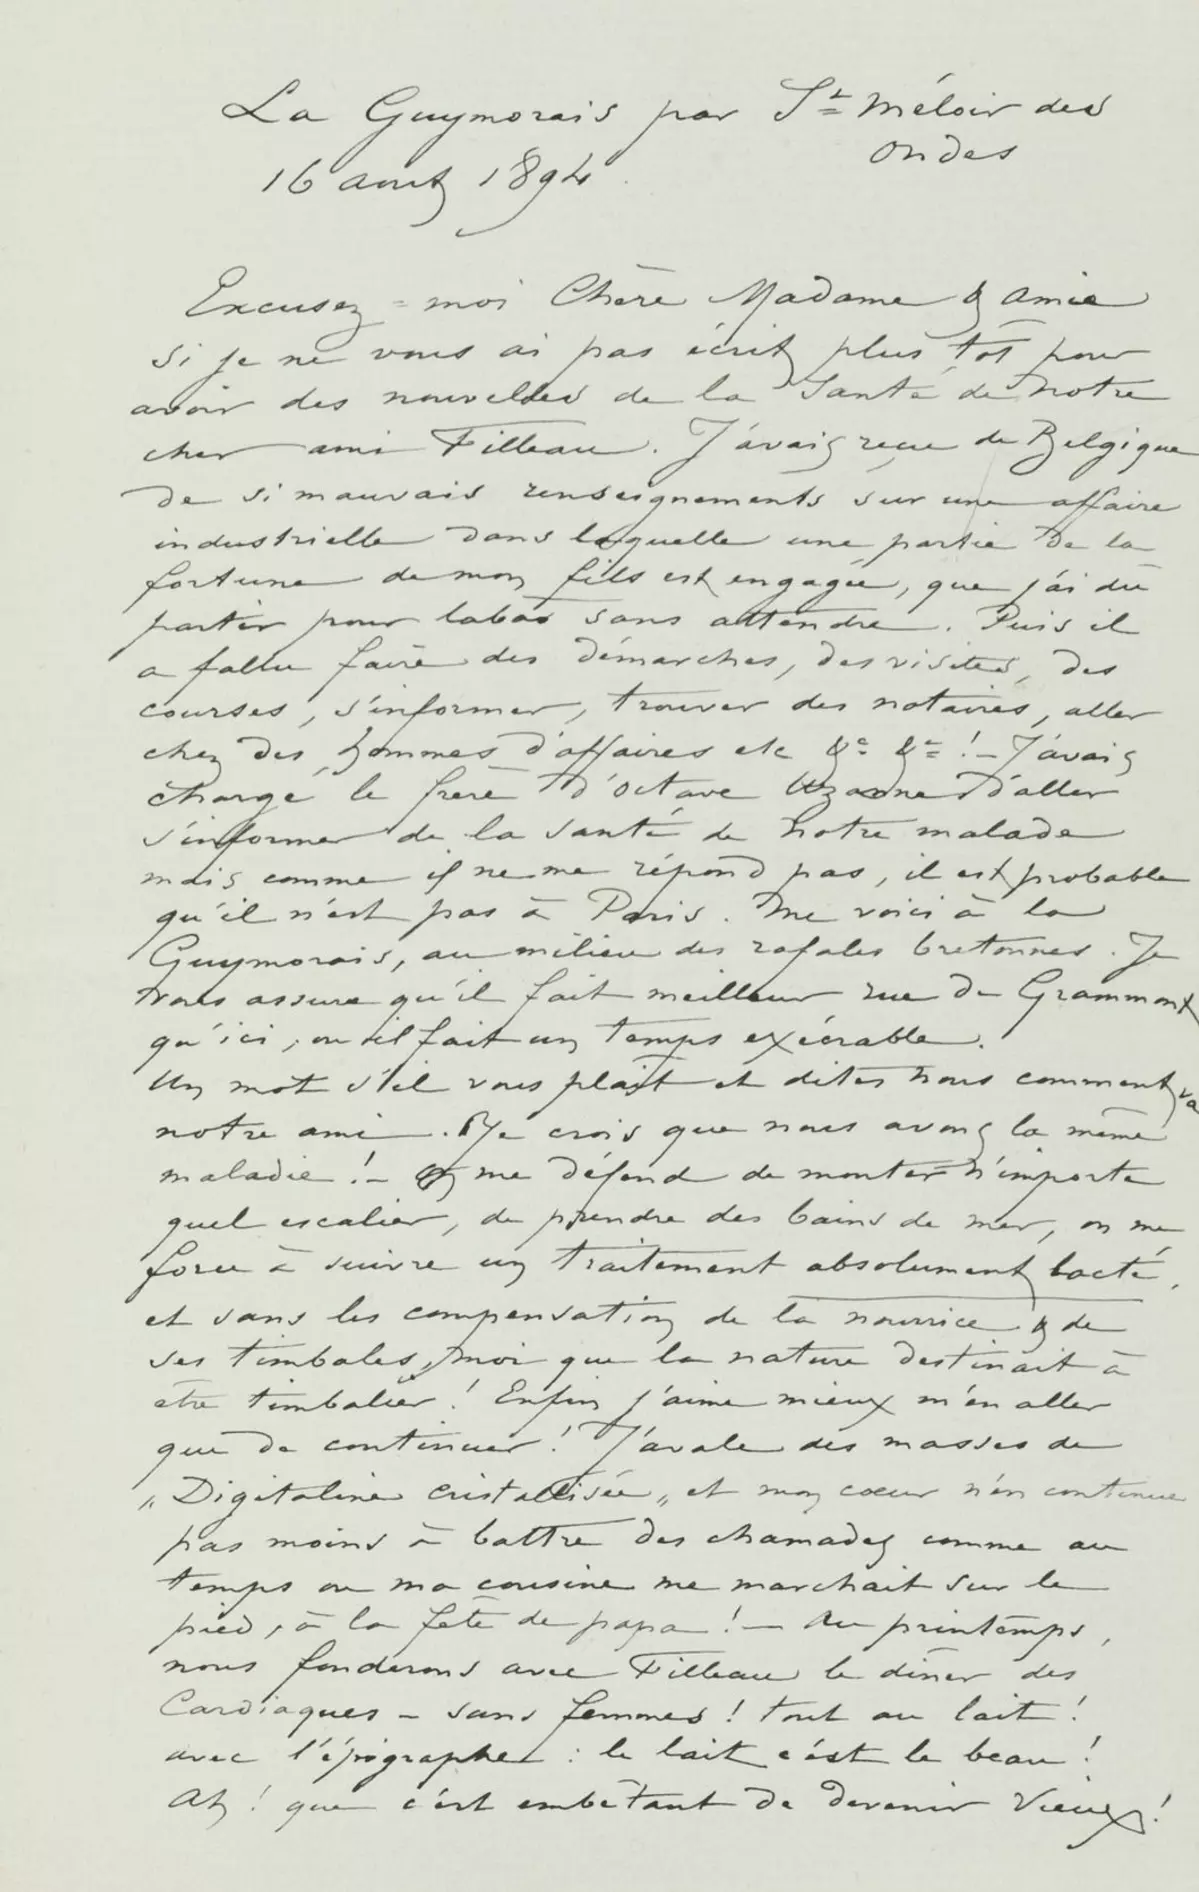 La Guymorais par St Méloir des
Ondes
16 aout 1894.
Excusez-moi Chère Madame & amie
si je ne vous ai pas écrit plus tôt pour
avoir des nouvelles de la Santé de notre
cher ami Filleau. J'avais reçue de Belgique
de si mauvais renseignements sur une affaire
industrielle dans laquelle une partie de la
fortune de mon fils est engagée, que j'ai dû
partir pour labas sans attendre. Puis il
a fallu faire des démarches, des visites, des
courses, s'informer, trouver des notaires, aller
chez des hommes d'affaires etc &a &a ! – J'avais
chargé le frère d'Octave Uzanne d'aller
s'informer de la santé de notre malade
mais comme il ne me répond pas, il est probable
qu'il n'est pas à Paris. Me voici à la
Guymorais, au milieu des rafales bretonnes. Je
vous assure qu'il fait meilleur rue de Grammont
qu'ici, ou il fait un temps exécrable.
Un mot s'il vous plaît et dites nous comment va
notre ami. Je crois que nous avons la même
maladie ! – On me défend de monter n'importe
quel escalier, de prendre des bains de mer, on me
force à suivre un traitement absolument lacté,
et sans les compensation de la nourrice & de
ses timbales, moi que la nature destinait à
être timbalier ! Enfin j'aime mieux m'en aller
que de continuer ! J'avale des masses de
„Digitaline cristallisée„ et mon cœur n'en continue
pas moins à battre des chamades comme au
temps ou ma cousine me marchait sur le
pied, à la fête de papa ! – Au printemps,
nous fonderons avec Filleau le dîner des
Cardiaques – sans femmes ! tout au lait !
avec l'épigraphe : le lait c'est le beau !
Ah ! que c'est embêtant de devenir Vieux !